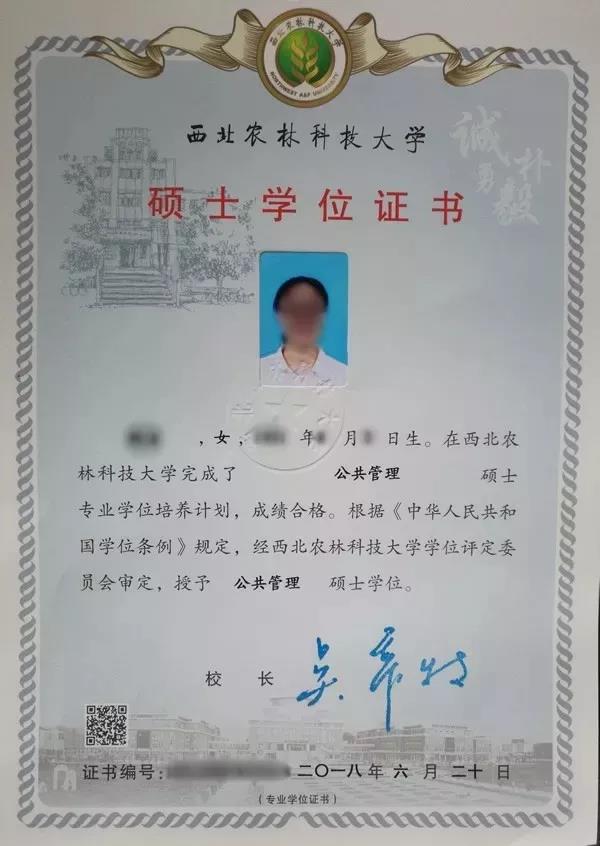 西北农林科技大学
NORTHWEST A&F UNIVERSITY
西北农林科技大学
诚朴
勇毅
硕士学位证书
，女， 年 月 日生。在西北农
林科技大学完成了 公共管理 硕士
专业学位培养计划，成绩合格。根据《中华人民共和
国学位条例》规定，经西北农林科技大学学位评定委
员会审定，授予 公共管理 硕士学位。
校 长
证书编号： 二〇一八年 六 月 二十 日
（专业学位证书）